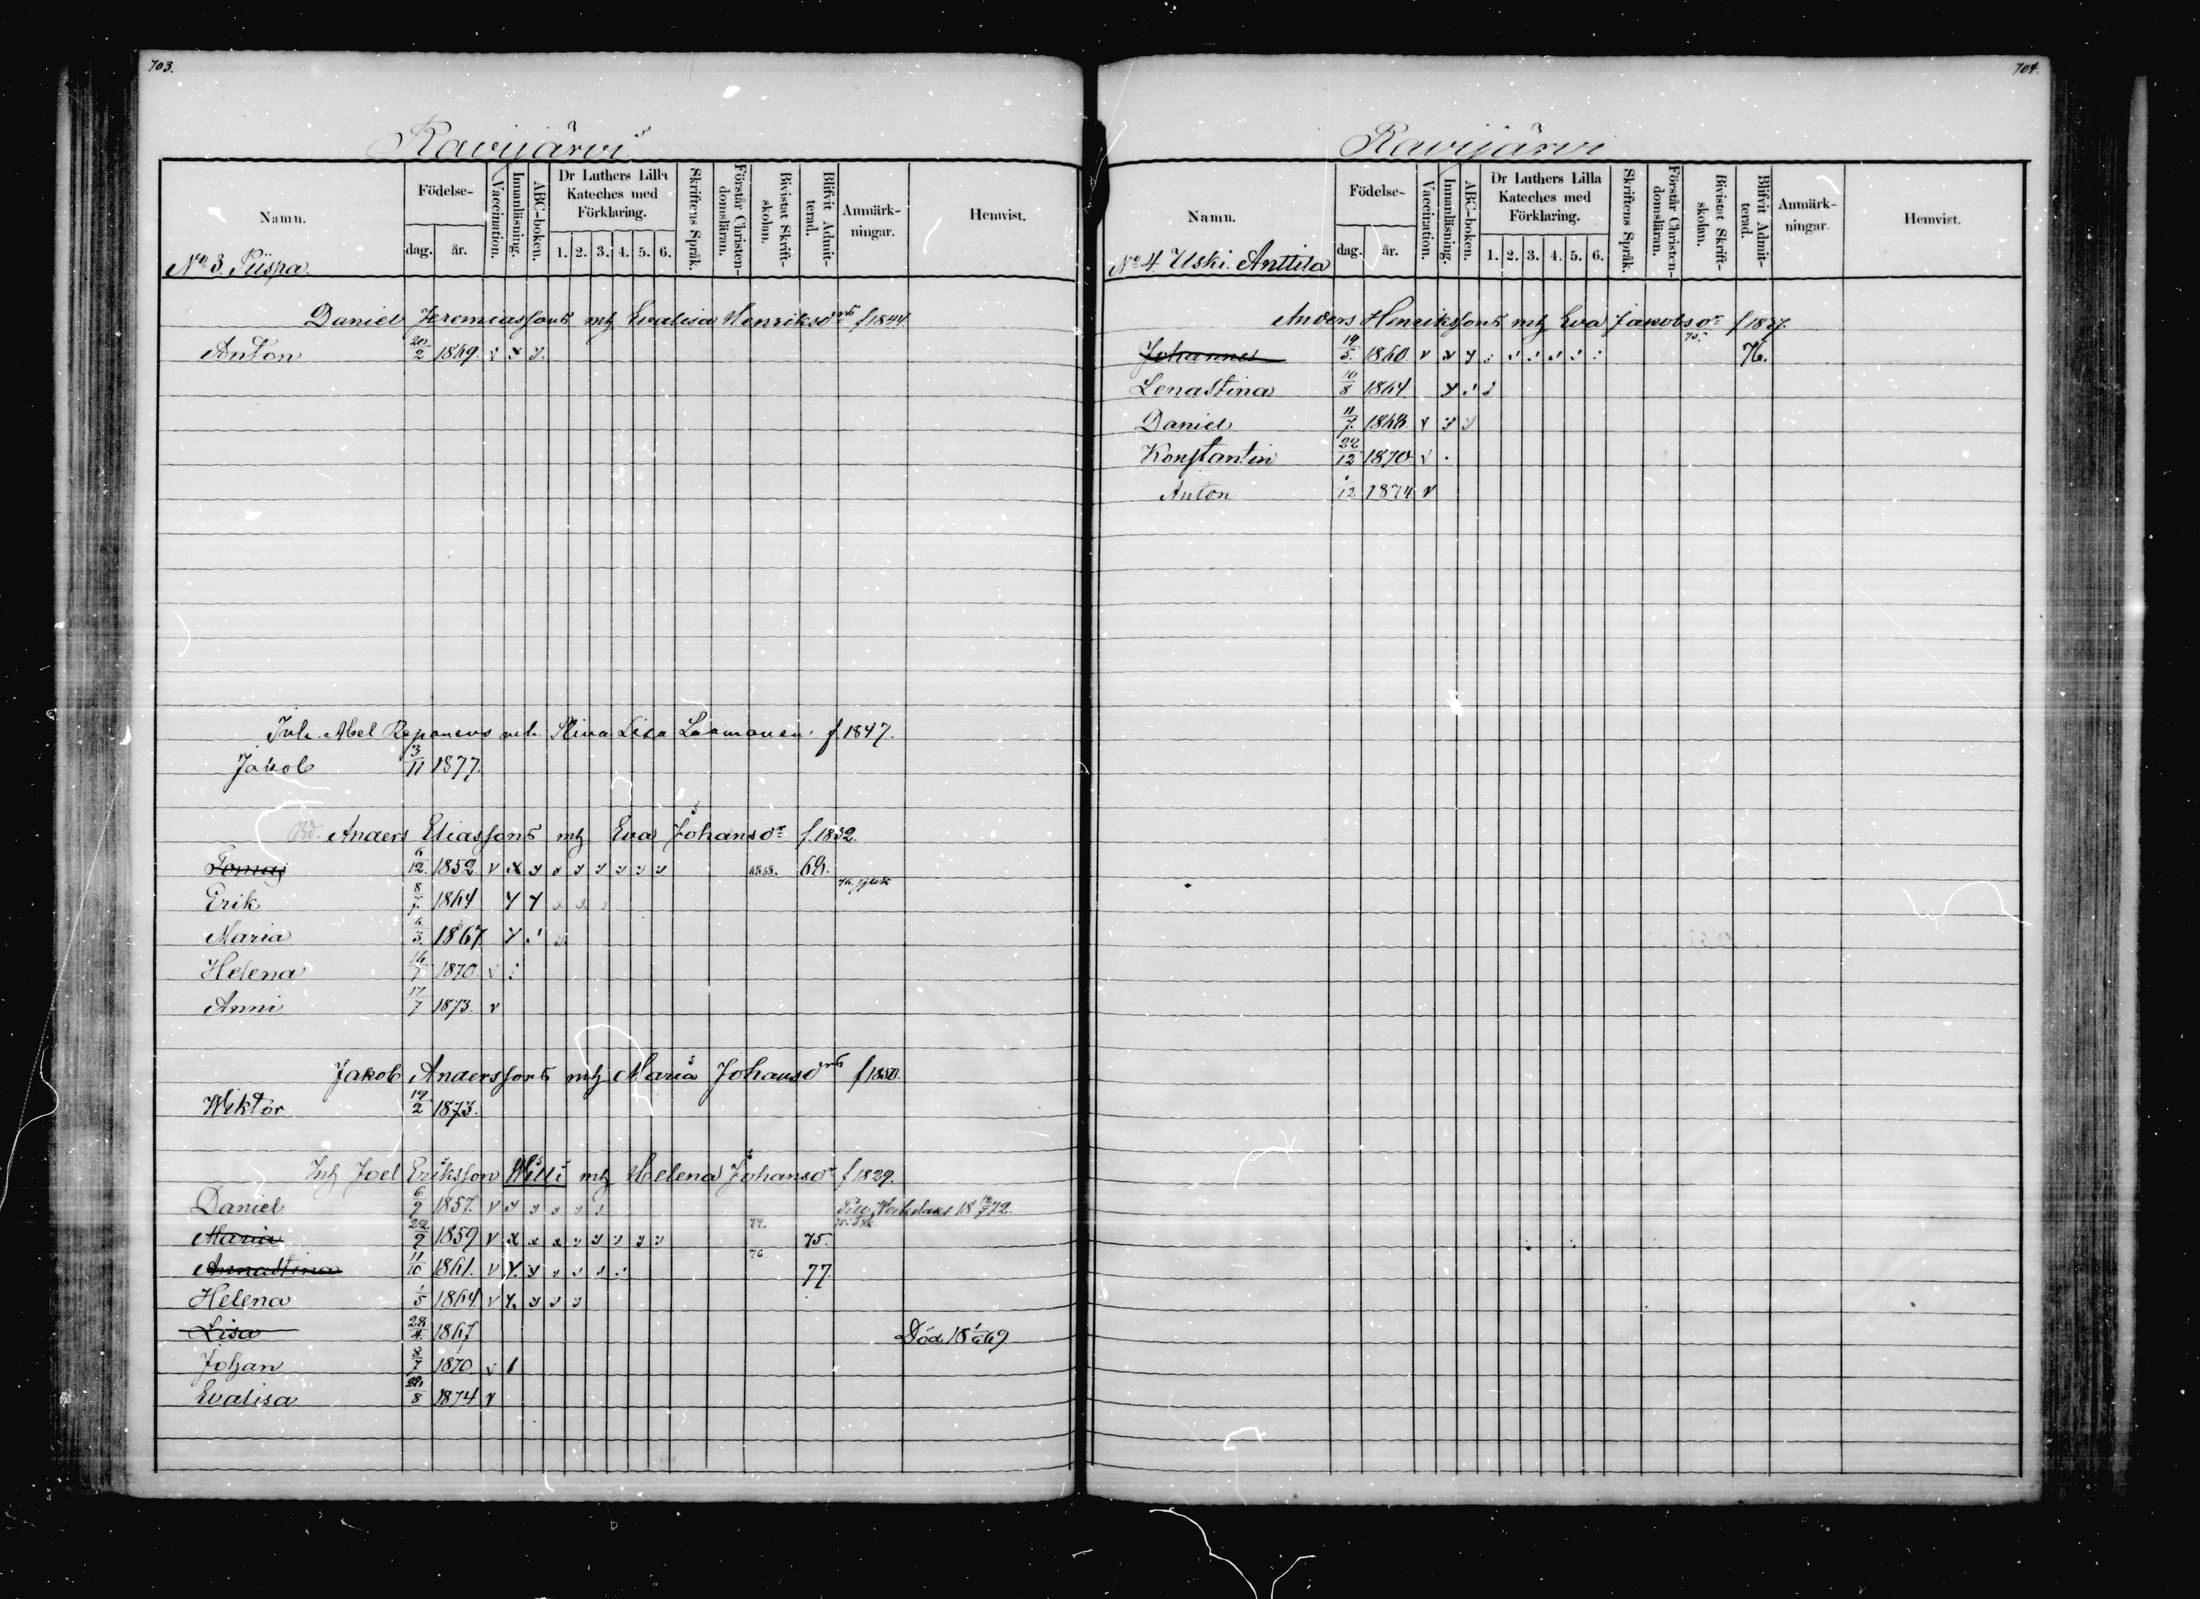 703.
Ravijärvi
Namn.
Födelse-
dag.
år.
Vaccination.
Innanläsning.
ABC-boken.
Dr Luthers Lilla Kateches med Förklaring.
1. 2. 3. 4. 5. 6.
Skriftens Språk.
Förstår Christendomsläran.
Bivistat Skriftskolan.
Blifvit Admitterad.
Anmärkningar.
Hemvist.
No 3. Piispa.
Daniel Jeremiassons mh Evalisa Henriksdrs f 1844
Anton 2 1869. v x y.
Inh. Abel Reponens mh. Stina Lisa f 1847.
Jakob 3/11 1877.
Anders Eliassons mh Eva Johansdr f. 1832.
Tomas 6/12 1852 v x y 68.
Erik 8/7 1864 y y
Maria 6/3 1867 y
Helena 16/7 1870. v
Anni 17/7 1873. v
Jakob Anderssons mh Maria Johansdrs f 1850.
Wiktor 19/2 1873.
Inh Joel Eriksson Willi mh Helena Johansdr f 1829.
Daniel 6/9 1857. v y
Maria 22/9 1859 v x 74. 75.
Annastina 11/10 1861. v y. y 76. 77.
Helena 1/5 1864. v y. y
Lisa 28/4 1867 Död 18 1/6 69
Johan 8/7 1870 v
Evalisa 8 1874 v
704.
Ravijärvi
Namn.
Födelse-
dag.
år.
Vaccination.
Innanläsning.
ABC-boken.
Dr Luthers Lilla Kateches med Förklaring.
1. 2. 3. 4. 5. 6.
Skriftens Språk.
Förstår Christendomsläran.
Bivistat Skriftskolan.
Blifvit Admitterad.
Anmärkningar.
Hemvist.
No 4 Uski. Anttila
Anders Henrikssons mh Eva Jakobsdr f 1837.
Johannes 19/5. 1860. v x y 75. 76.
Lenastina 10/8 1864. y
Daniel 11/7. 1868. v y y
Konstantin 22/12 1870. v
Anton 1/12 1874 v